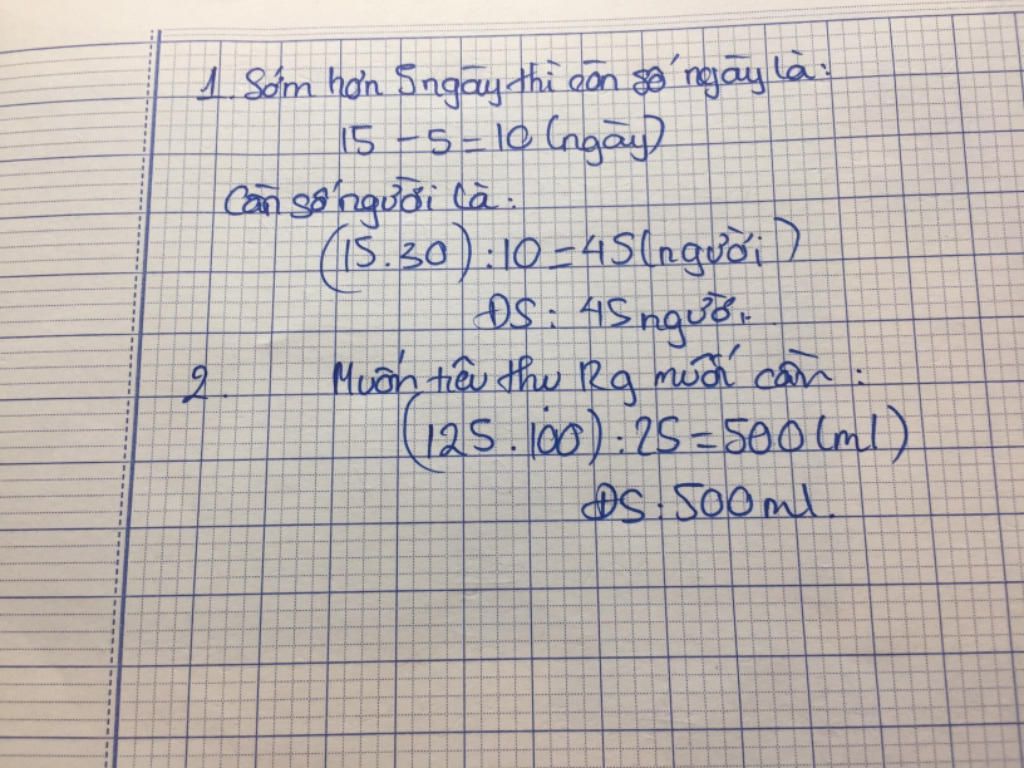 1. Sớm hơn 5 ngày thì cần số ngày là:
15 - 5 = 10 (ngày)
Cần số người là:
(15.30) : 10 = 45 (người)
ĐS: 45 người.
2. Muốn tiêu thụ 12g muối cần :
(125.100) : 25 = 500 (ml)
ĐS: 500 ml.